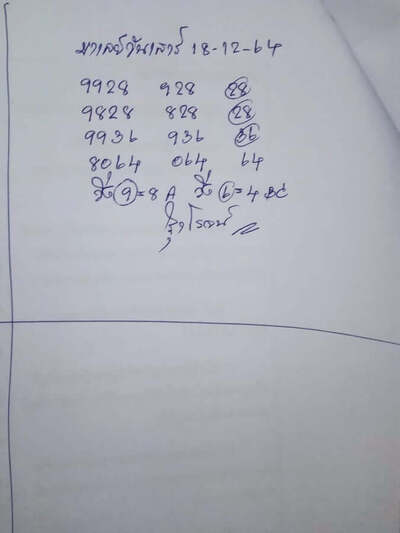 มาเลย์วันเสาร์ 18-12-64
9928 928 28
9828 828 28
9936 936 36
8064 064 64
วิ่ง 9=8 A วิ่ง 6=4 BC